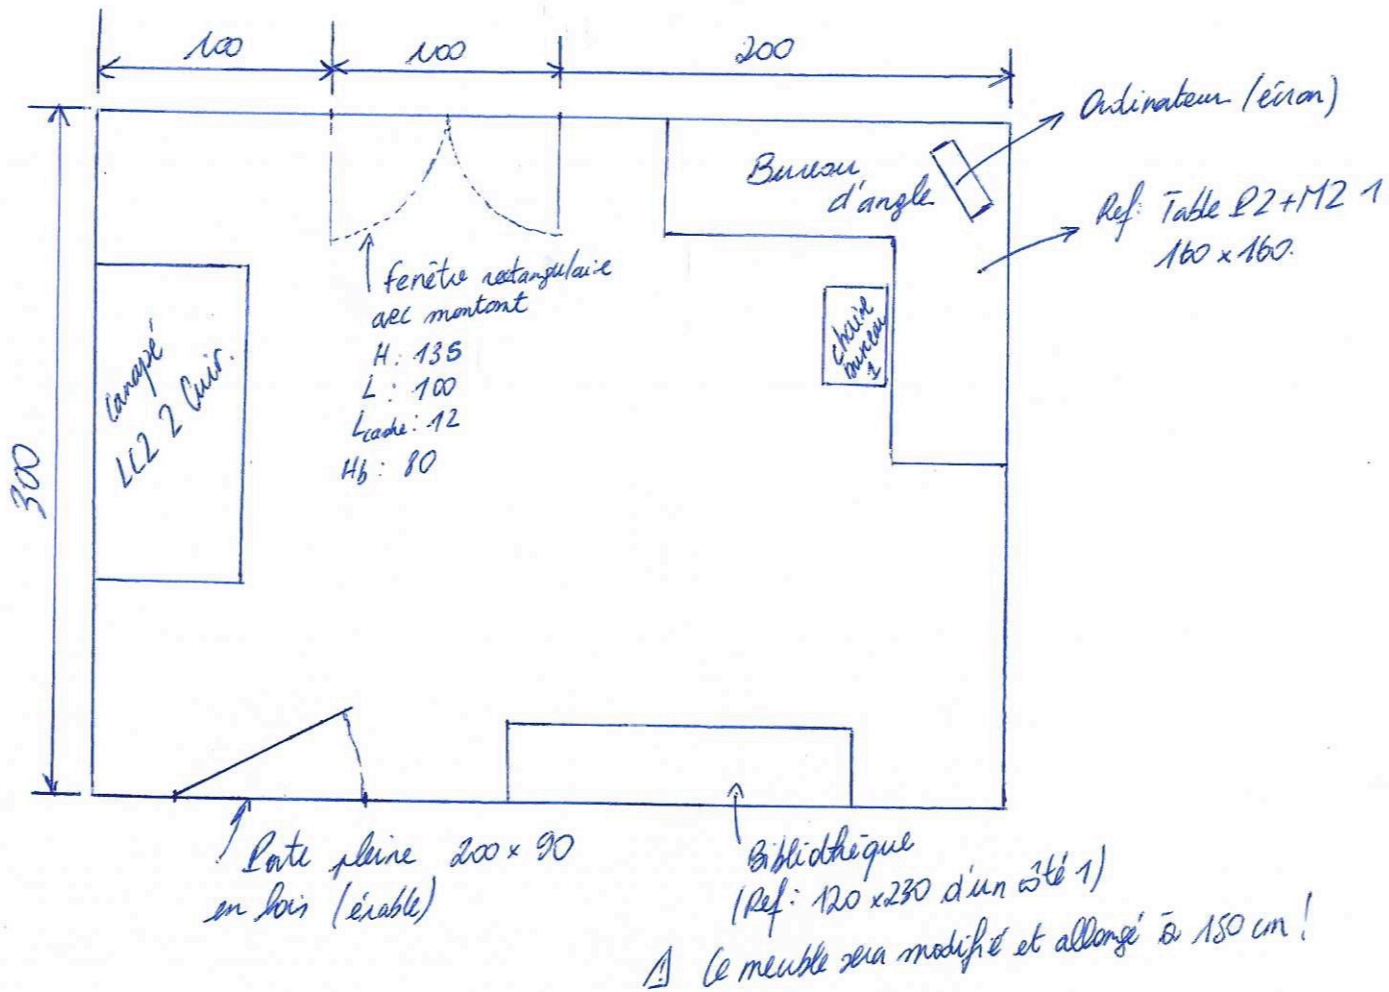 100
100
200
Ordinateur (écran)
Bureau
d'angle
Ref: Table P2+M2 1
160 x 160.
300
Canapé
LC2 2 Cuir.
fenêtre rectangulaire
avec montant
H: 135
L: 100
Lcadre: 12
Hb: 80
chaise
bureau
1
Porte pleine 200 x 90
en bois (érable)
Bibliothèque
(Ref: 120 x 230 d'un côté 1)
⚠ Ce meuble sera modifié et allongé à 150 cm !